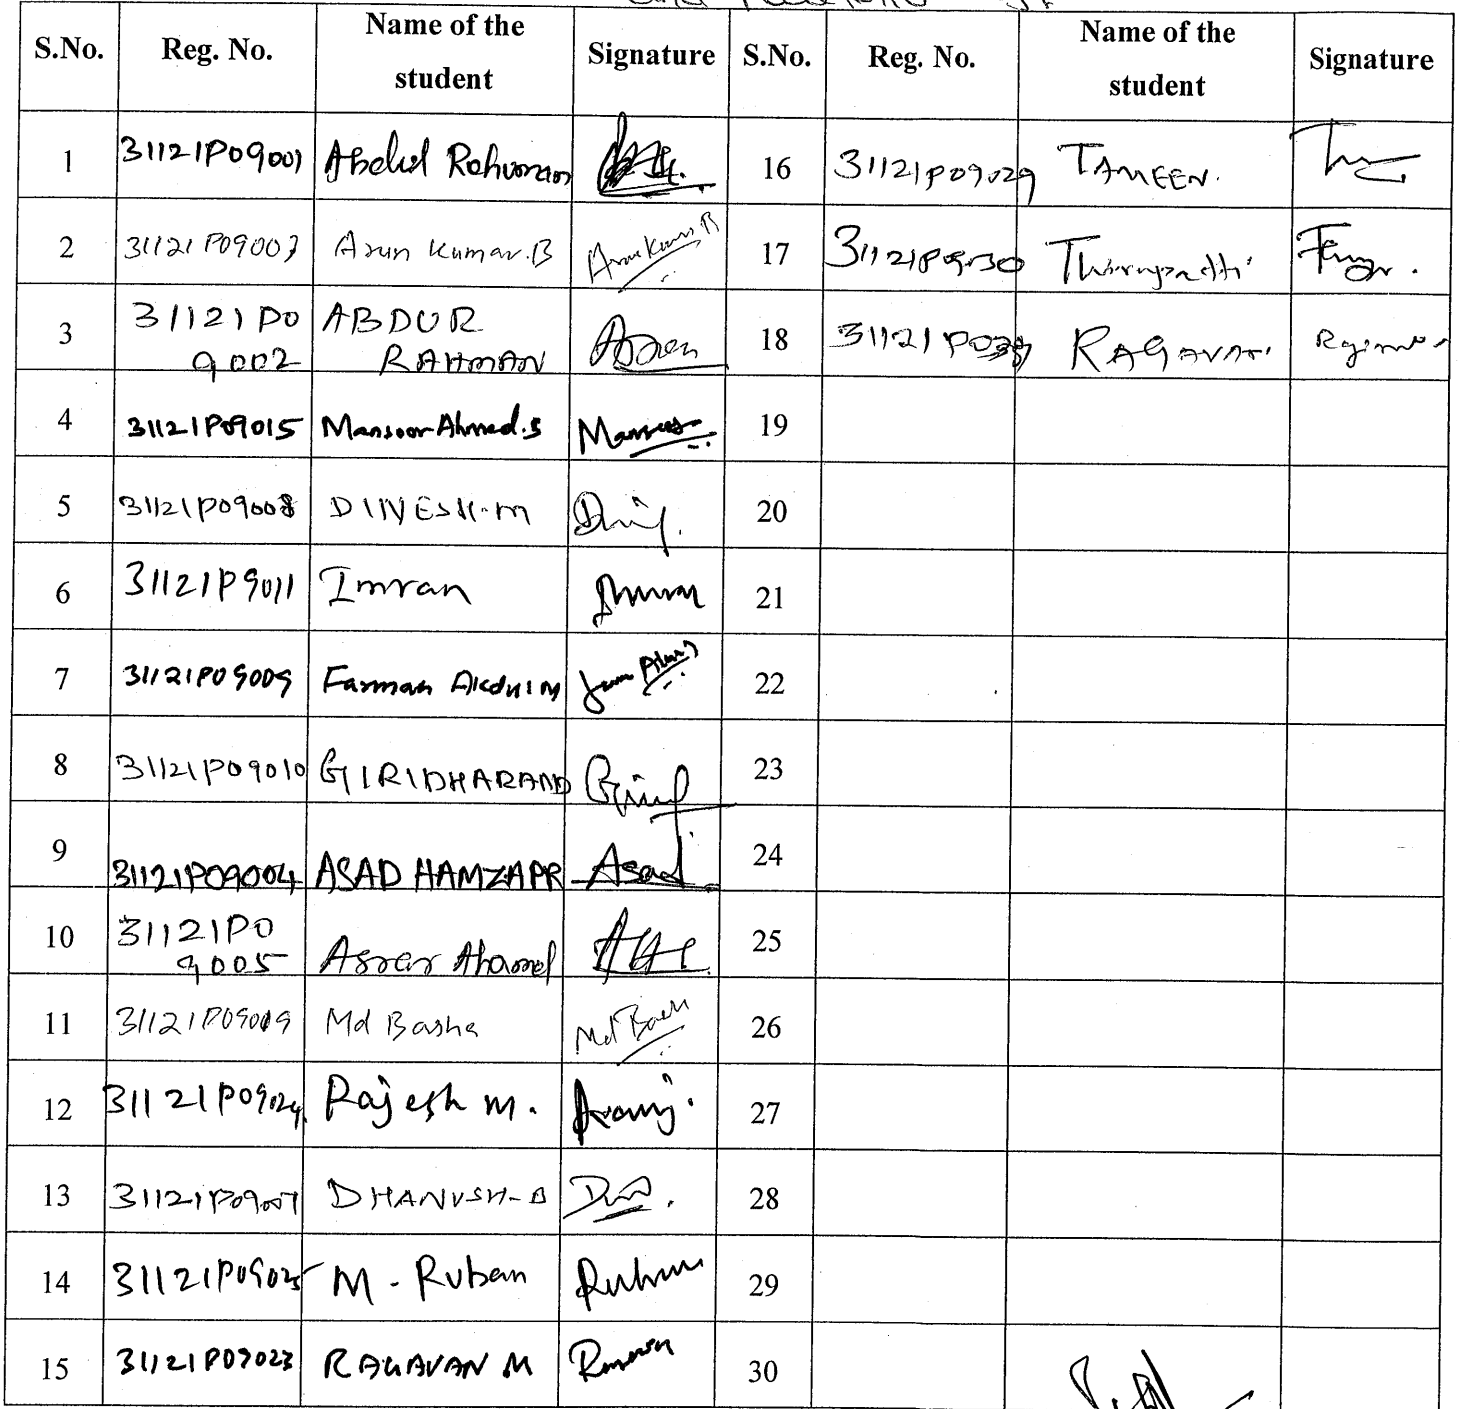 S.No. Reg. No. Name of the student Signature S.No. Reg. No. Name of the student Signature
1 31121P09001 Abdul Rahuman 16 31121P09029 TAMEEN.
2 31121P09003 Arun Kumar.B Arun Kumar B 17 31121P09030
3 31121P0 9002 ABDUR RAHMAN 18 RAGAVAN
4 31121P09015 Mansoor Ahmed.S 19
5 31121P09008 DINESH.M 20
6 31121P9011 Imran 21
7 31121P09009 Farman 22
8 31121P09010 GIRIDHARAN D 23
9 31121P09004 ASAD HAMZA PR Asad 24
10 31121P0 9005 Asrar Ahamed 25
11 31121P09019 Md Basha 26
12 31121P09024 Rajesh M. 27
13 31121P09007 DHANUSH-B 28
14 31121P09025 M. Ruban 29
15 31121P09023 RAGAVAN M 30